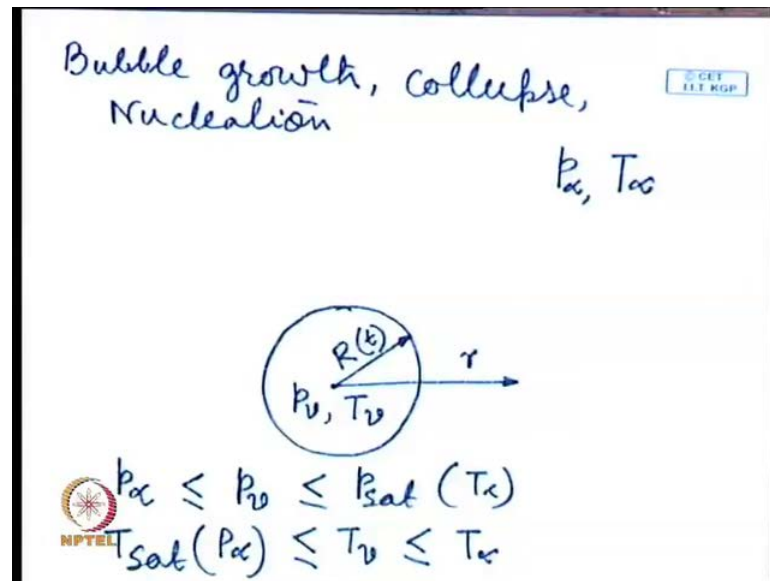 Bubble growth, collapse,
Nucleation
© CET
I.I.T. KGP
P∝, T∝
R(t)
r
Pv, Tv
P∝ ≤ Pv ≤ Psat (T∝)
Tsat (P∝) ≤ Tv ≤ T∝
NPTEL